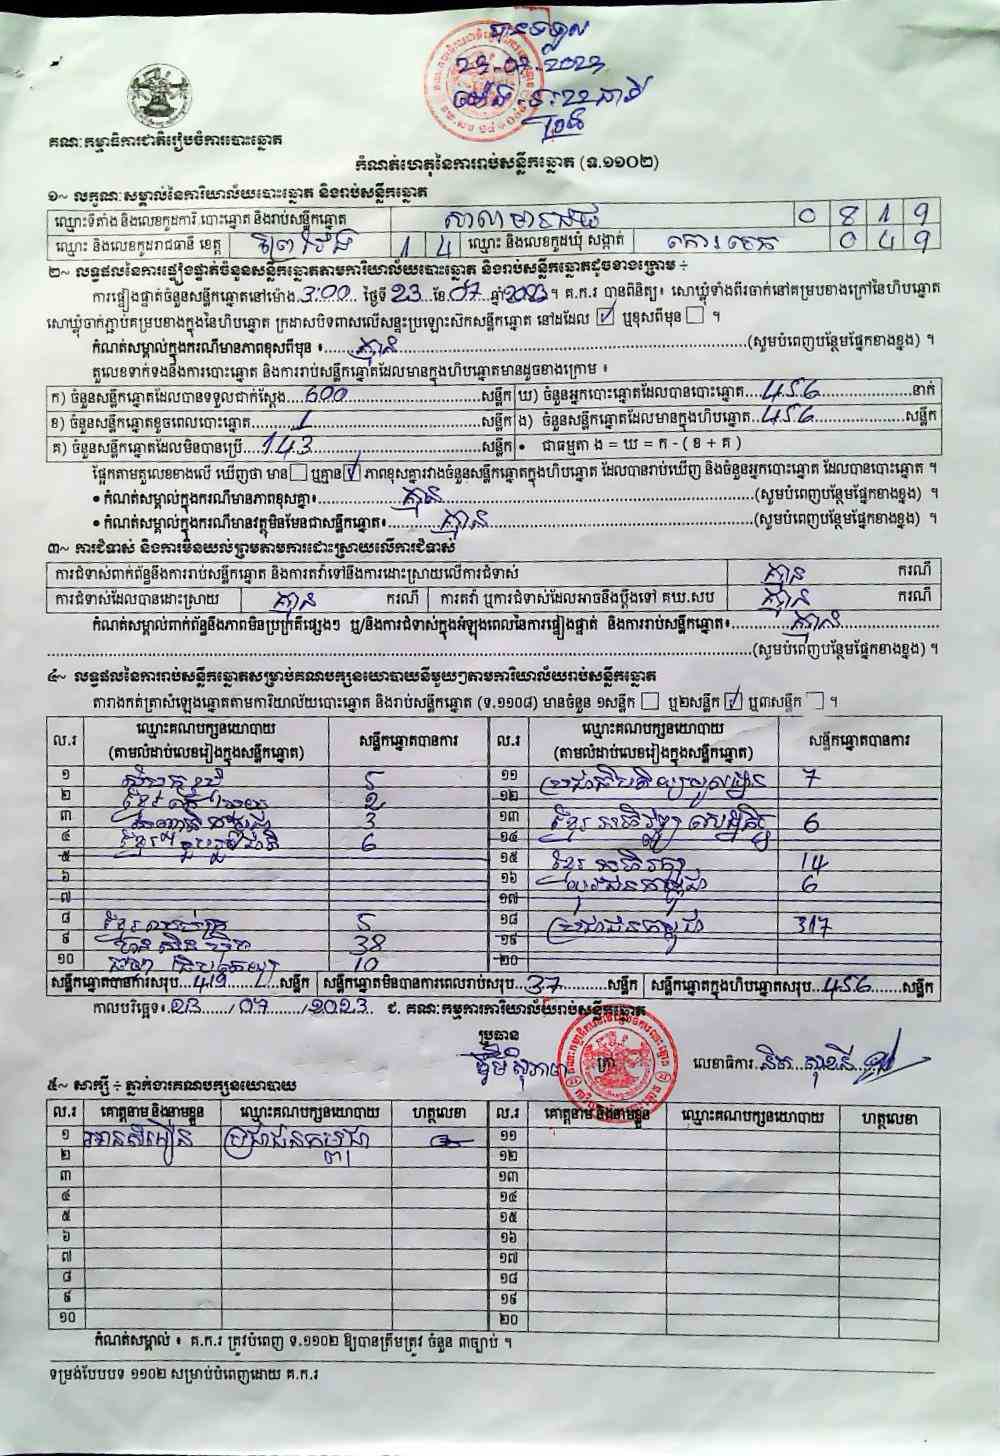 បានទទួល
គណៈកម្មាធិការជាតិរៀបចំការបោះឆ្នោត
កំណត់ហេតុនៃការរាប់សន្លឹកឆ្នោត (ទ.១១០២)
១~ លក្ខណៈសម្គាល់នៃការិយាល័យបោះឆ្នោត និងរាប់សន្លឹកឆ្នោត
ឈ្មោះទីតាំង និងលេខកូដការិ.បោះឆ្នោត និងរាប់សន្លឹកឆ្នោត 0 8 1 9
ឈ្មោះ និងលេខកូដរាជធានី ខេត្ត ព្រៃវែង 1 4 ឈ្មោះ និងលេខកូដឃុំ សង្កាត់ 0 4 9
២~ លទ្ធផលនៃការផ្ទៀងផ្ទាត់ចំនួនសន្លឹកឆ្នោតតាមការិយាល័យបោះឆ្នោត និងរាប់សន្លឹកឆ្នោតដូចខាងក្រោម ÷
ការផ្ទៀងផ្ទាត់ចំនួនសន្លឹកឆ្នោតនៅម៉ោង 3:00 ថ្ងៃទី 23 ខែ 07 ឆ្នាំ 2023 ។ គ.ក.រ បានពិនិត្យ៖ សោឃ្លុំទាំងពីរចាក់នៅគម្របខាងក្រៅនៃហិបឆ្នោត
សោឃ្លុំចាក់ភ្ជាប់គម្របខាងក្នុងនៃហិបឆ្នោត ក្រដាសបិទពាសលើសន្ទះប្រឡោះស៊កសន្លឹកឆ្នោត នៅដដែល ☑ ឬខុសពីមុន ☐ ។
កំណត់សម្គាល់ក្នុងករណីមានភាពខុសពីមុន ៖ គ្មាន (សូមបំពេញបន្ថែមផ្នែកខាងខ្នង) ។
តួលេខទាក់ទងនឹងការបោះឆ្នោត និងការរាប់សន្លឹកឆ្នោតដែលមានក្នុងហិបឆ្នោតមានដូចខាងក្រោម ៖
ក) ចំនួនសន្លឹកឆ្នោតដែលបានទទួលជាក់ស្តែង 600 សន្លឹក ឃ) ចំនួនអ្នកបោះឆ្នោតដែលបានបោះឆ្នោត 456 នាក់
ខ) ចំនួនសន្លឹកឆ្នោតខូចពេលបោះឆ្នោត 1 សន្លឹក ង) ចំនួនសន្លឹកឆ្នោតដែលមានក្នុងហិបឆ្នោត 456 សន្លឹក
គ) ចំនួនសន្លឹកឆ្នោតដែលមិនបានប្រើ 143 សន្លឹក • ជាធម្មតា ង = ឃ = ក - ( ខ + គ )
ផ្អែកតាមតួលេខខាងលើ ឃើញថា មាន ☐ ឬគ្មាន ☑ ភាពខុសគ្នារវាងចំនួនសន្លឹកឆ្នោតក្នុងហិបឆ្នោត ដែលបានរាប់ឃើញ និងចំនួនអ្នកបោះឆ្នោត ដែលបានបោះឆ្នោត ។
• កំណត់សម្គាល់ក្នុងករណីមានភាពខុសគ្នា៖ គ្មាន (សូមបំពេញបន្ថែមផ្នែកខាងខ្នង) ។
• កំណត់សម្គាល់ក្នុងករណីមានវត្ថុមិនមែនជាសន្លឹកឆ្នោត៖ គ្មាន (សូមបំពេញបន្ថែមផ្នែកខាងខ្នង) ។
៣~ ការជំទាស់ និងការមិនយល់ព្រមតាមការដោះស្រាយលើការជំទាស់
ការជំទាស់ពាក់ព័ន្ធនឹងការរាប់សន្លឹកឆ្នោត និងការតវ៉ាទៅនឹងការដោះស្រាយលើការជំទាស់ គ្មាន ករណី
ការជំទាស់ដែលបានដោះស្រាយ គ្មាន ករណី ការតវ៉ា ឬការជំទាស់ដែលអាចនឹងប្តឹងទៅ គឃ.សប គ្មាន ករណី
កំណត់សម្គាល់ពាក់ព័ន្ធនឹងភាពមិនប្រក្រតីផ្សេងៗ ឬ/និងការជំទាស់ក្នុងអំឡុងពេលនៃការផ្ទៀងផ្ទាត់ និងការរាប់សន្លឹកឆ្នោត៖ គ្មាន
(សូមបំពេញបន្ថែមផ្នែកខាងខ្នង) ។
៤~ លទ្ធផលនៃការរាប់សន្លឹកឆ្នោតសម្រាប់គណបក្សនយោបាយនីមួយៗតាមការិយាល័យរាប់សន្លឹកឆ្នោត
តារាងកត់ត្រាសំឡេងឆ្នោតតាមការិយាល័យបោះឆ្នោត និងរាប់សន្លឹកឆ្នោត (ទ.១១០៨) មានចំនួន ១សន្លឹក ☐ ឬ២សន្លឹក ☑ ឬ៣សន្លឹក ☐ ។
ល.រ ឈ្មោះគណបក្សនយោបាយ សន្លឹកឆ្នោតបានការ ល.រ ឈ្មោះគណបក្សនយោបាយ សន្លឹកឆ្នោតបានការ
(តាមលំដាប់លេខរៀងក្នុងសន្លឹកឆ្នោត) (តាមលំដាប់លេខរៀងក្នុងសន្លឹកឆ្នោត)
១ 5 ១១ 7
២ 2 ១២
៣ 3 ១៣ 6
៤ 6 ១៤
៥ ១៥ 14
៦ ១៦ 6
៧ ១៧
៨ 5 ១៨ ប្រជាជនកម្ពុជា 317
៩ ហ៊្វុនស៊ិនប៉ិច 38 ១៩
១០ 10 ២០
សន្លឹកឆ្នោតបានការសរុប 419 សន្លឹក សន្លឹកឆ្នោតមិនបានការពេលរាប់សរុប 37 សន្លឹក សន្លឹកឆ្នោតក្នុងហិបឆ្នោតសរុប 456 សន្លឹក
កាលបរិច្ឆេទ៖ 23 / 07 / 2023 ជ. គណៈកម្មការការិយាល័យរាប់សន្លឹកឆ្នោត
ប្រធាន
លេខាធិការ
៥~ សាក្សី ÷ ភ្នាក់ងារគណបក្សនយោបាយ
ល.រ គោត្តនាម និងនាមខ្លួន ឈ្មោះគណបក្សនយោបាយ ហត្ថលេខា ល.រ គោត្តនាម និងនាមខ្លួន ឈ្មោះគណបក្សនយោបាយ ហត្ថលេខា
១ ប្រជាជនកម្ពុជា ១១
២ ១២
៣ ១៣
៤ ១៤
៥ ១៥
៦ ១៦
៧ ១៧
៨ ១៨
៩ ១៩
១០ ២០
កំណត់សម្គាល់ ៖ គ.ក.រ ត្រូវបំពេញ ទ.១១០២ ឱ្យបានត្រឹមត្រូវ ចំនួន ៣ច្បាប់ ។
ទម្រង់បែបបទ ១១០២ សម្រាប់បំពេញដោយ គ.ក.រ